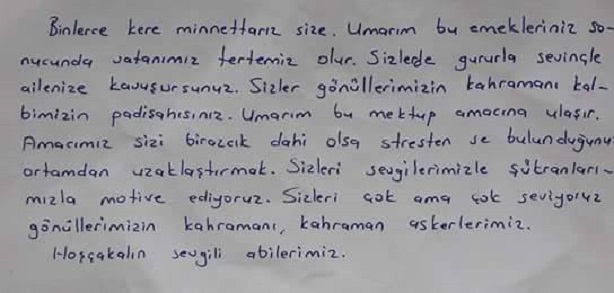 Binlerce kere minnettarız size. Umarım bu emekleriniz so-
nucunda vatanımız tertemiz olur. Sizlede gururla sevinçle
ailenize kavuşursunuz. Sizler gönüllerimizin kahramanı kal-
bimizin padişahısınız. Umarım bu mektup amacına ulaşır.
Amacımız sizi birazcık dahi olsa stresten ve bulunduğunu
ortamdan uzaklaştırmak. Sizleri sevgilerimizle şükranları-
mızla motive ediyoruz. Sizleri çok ama çok seviyoruz
gönüllerimizin kahramanı, kahraman askerlerimiz.
Hoşçakalın sevgili abilerimiz.